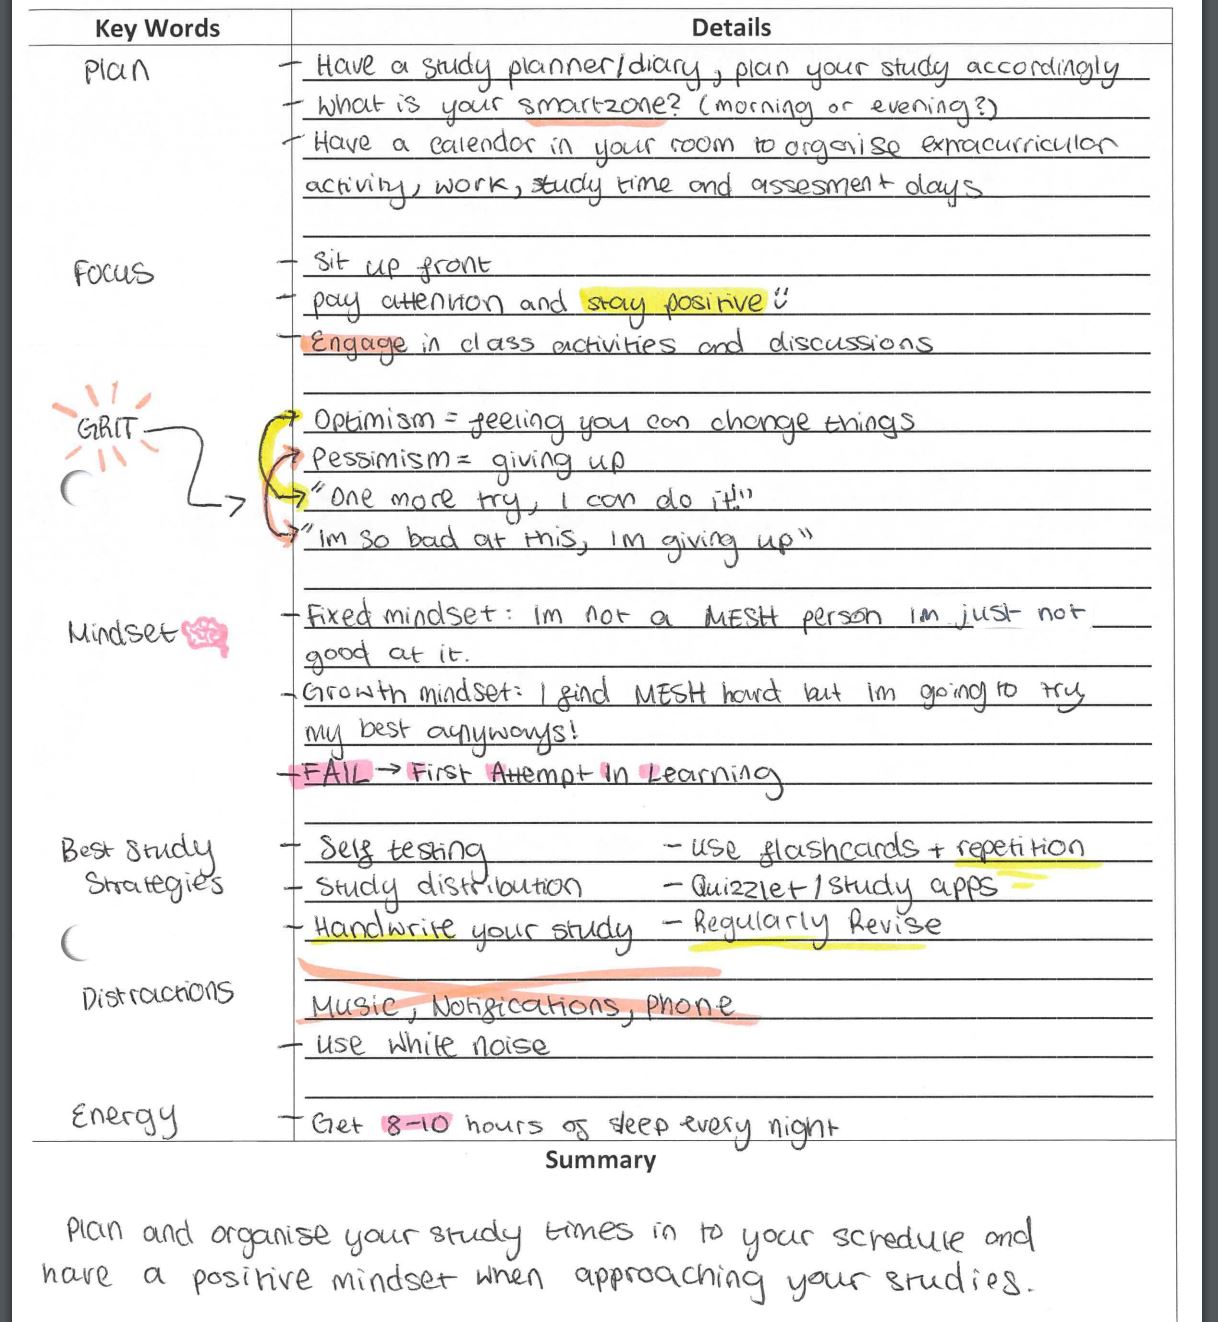 Key Words Details
Plan - Have a study planner/diary, plan your study accordingly
- What is your smartzone? (morning or evening?)
- Have a calendar in your room to organise extracurricular
activity, work, study time and assesment days
Focus - Sit up front
- pay attention and stay positive
- Engage in class activities and discussions
GRIT Optimism = feeling you can change things
Pessimism = giving up
"One more try, I can do it!"
"Im so bad at this, Im giving up"
Mindset - Fixed mindset: Im not a MESH person im just not
good at it.
- Growth mindset: I find MESH hard but im going to try
my best anyways!
- FAIL → First Attempt In Learning
Best Study - Self testing - use flashcards + repetition
Strategies - Study distribution - Quizzlet / study apps
- Handwrite your study - Regularly Revise
Distractions Music, Notifications, Phone
- use white noise
Energy - Get 8-10 hours of sleep every night
Summary
Plan and organise your study times in to your schedule and
have a positive mindset when approaching your studies.